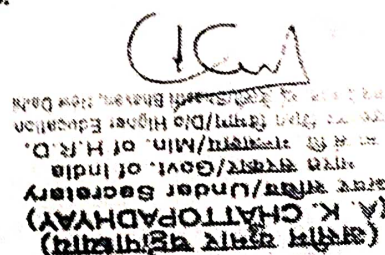 कुमार चट्टोपाध्याय)
(A. K. CHATTOPADHYAY)
अवर सचिव/Under Secretary
भारत सरकार/Govt. of India
मंत्रालय/Min. of H.R.D.
शिक्षा विभाग/D/o Higher Education
Shastri Bhavan, New Delhi